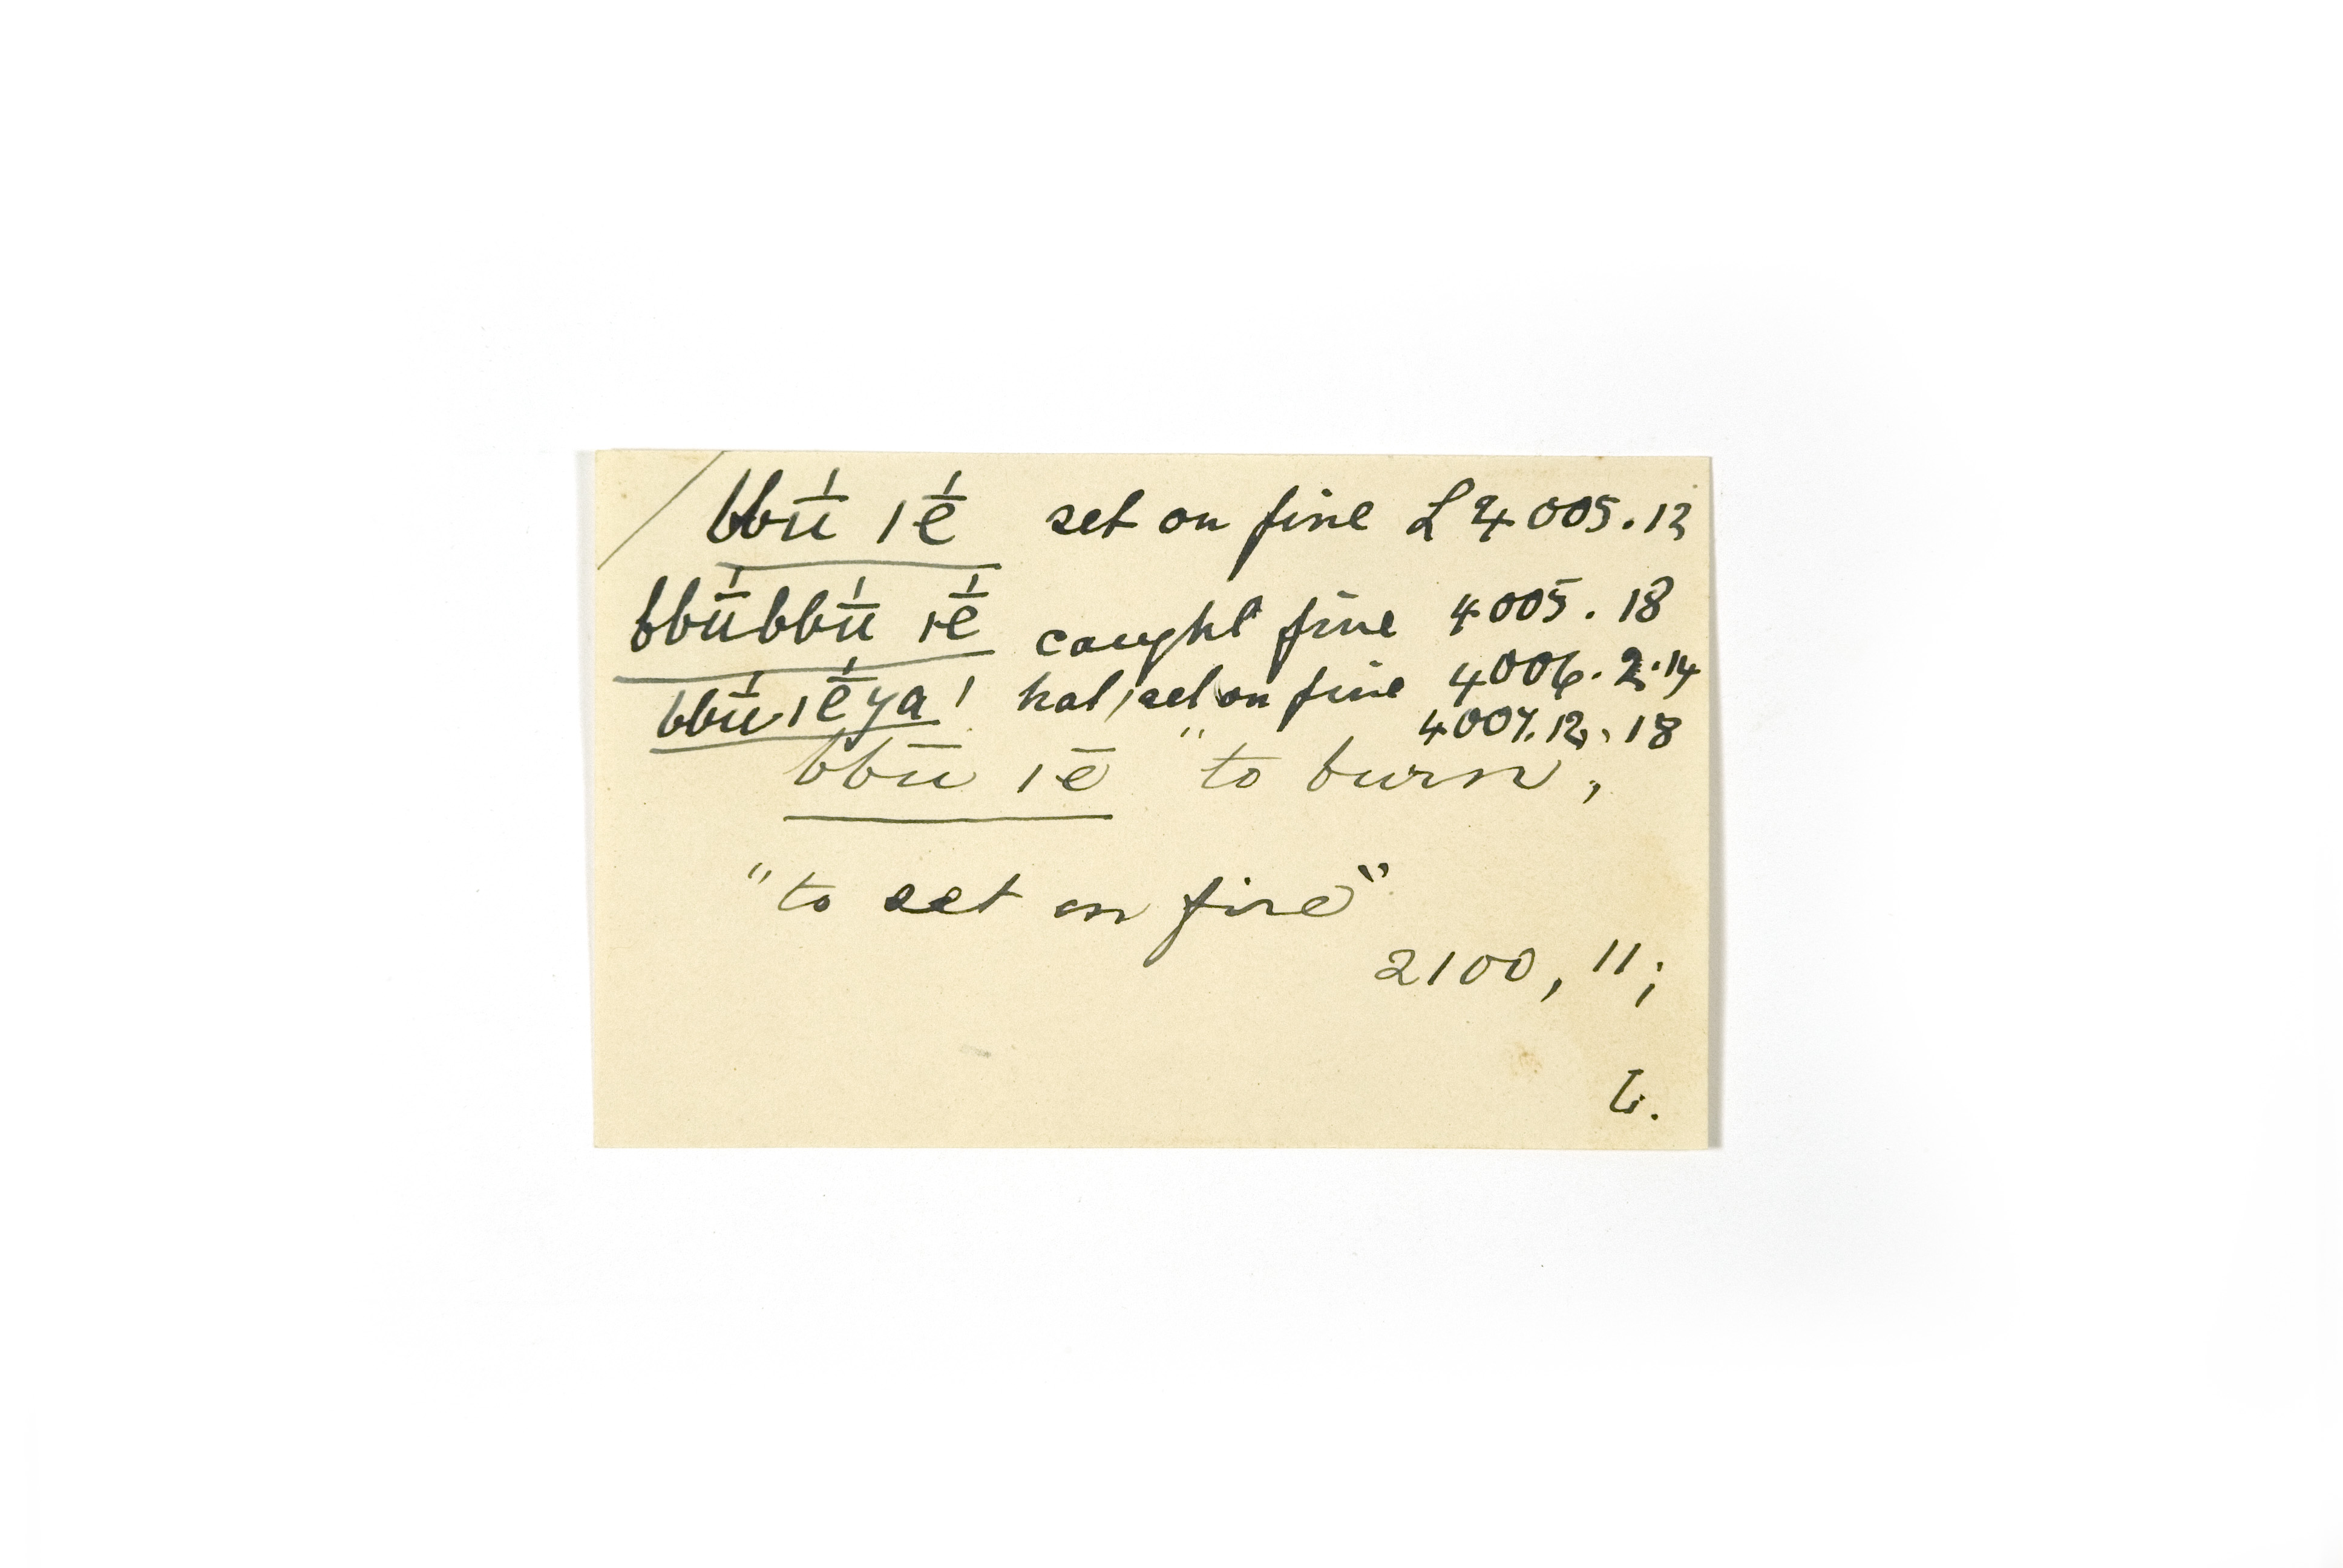 bbū̍ ıē̍ set on fire L 4005.12
bbū̍bbū̍ ıē̍ caught fire 4005. 18
bbū̍ ıē̍ya set on fire 4006. 2.14
4007.12. 18
bbū ıē "to burn,
"to set on fire"
2100, 11;
L.